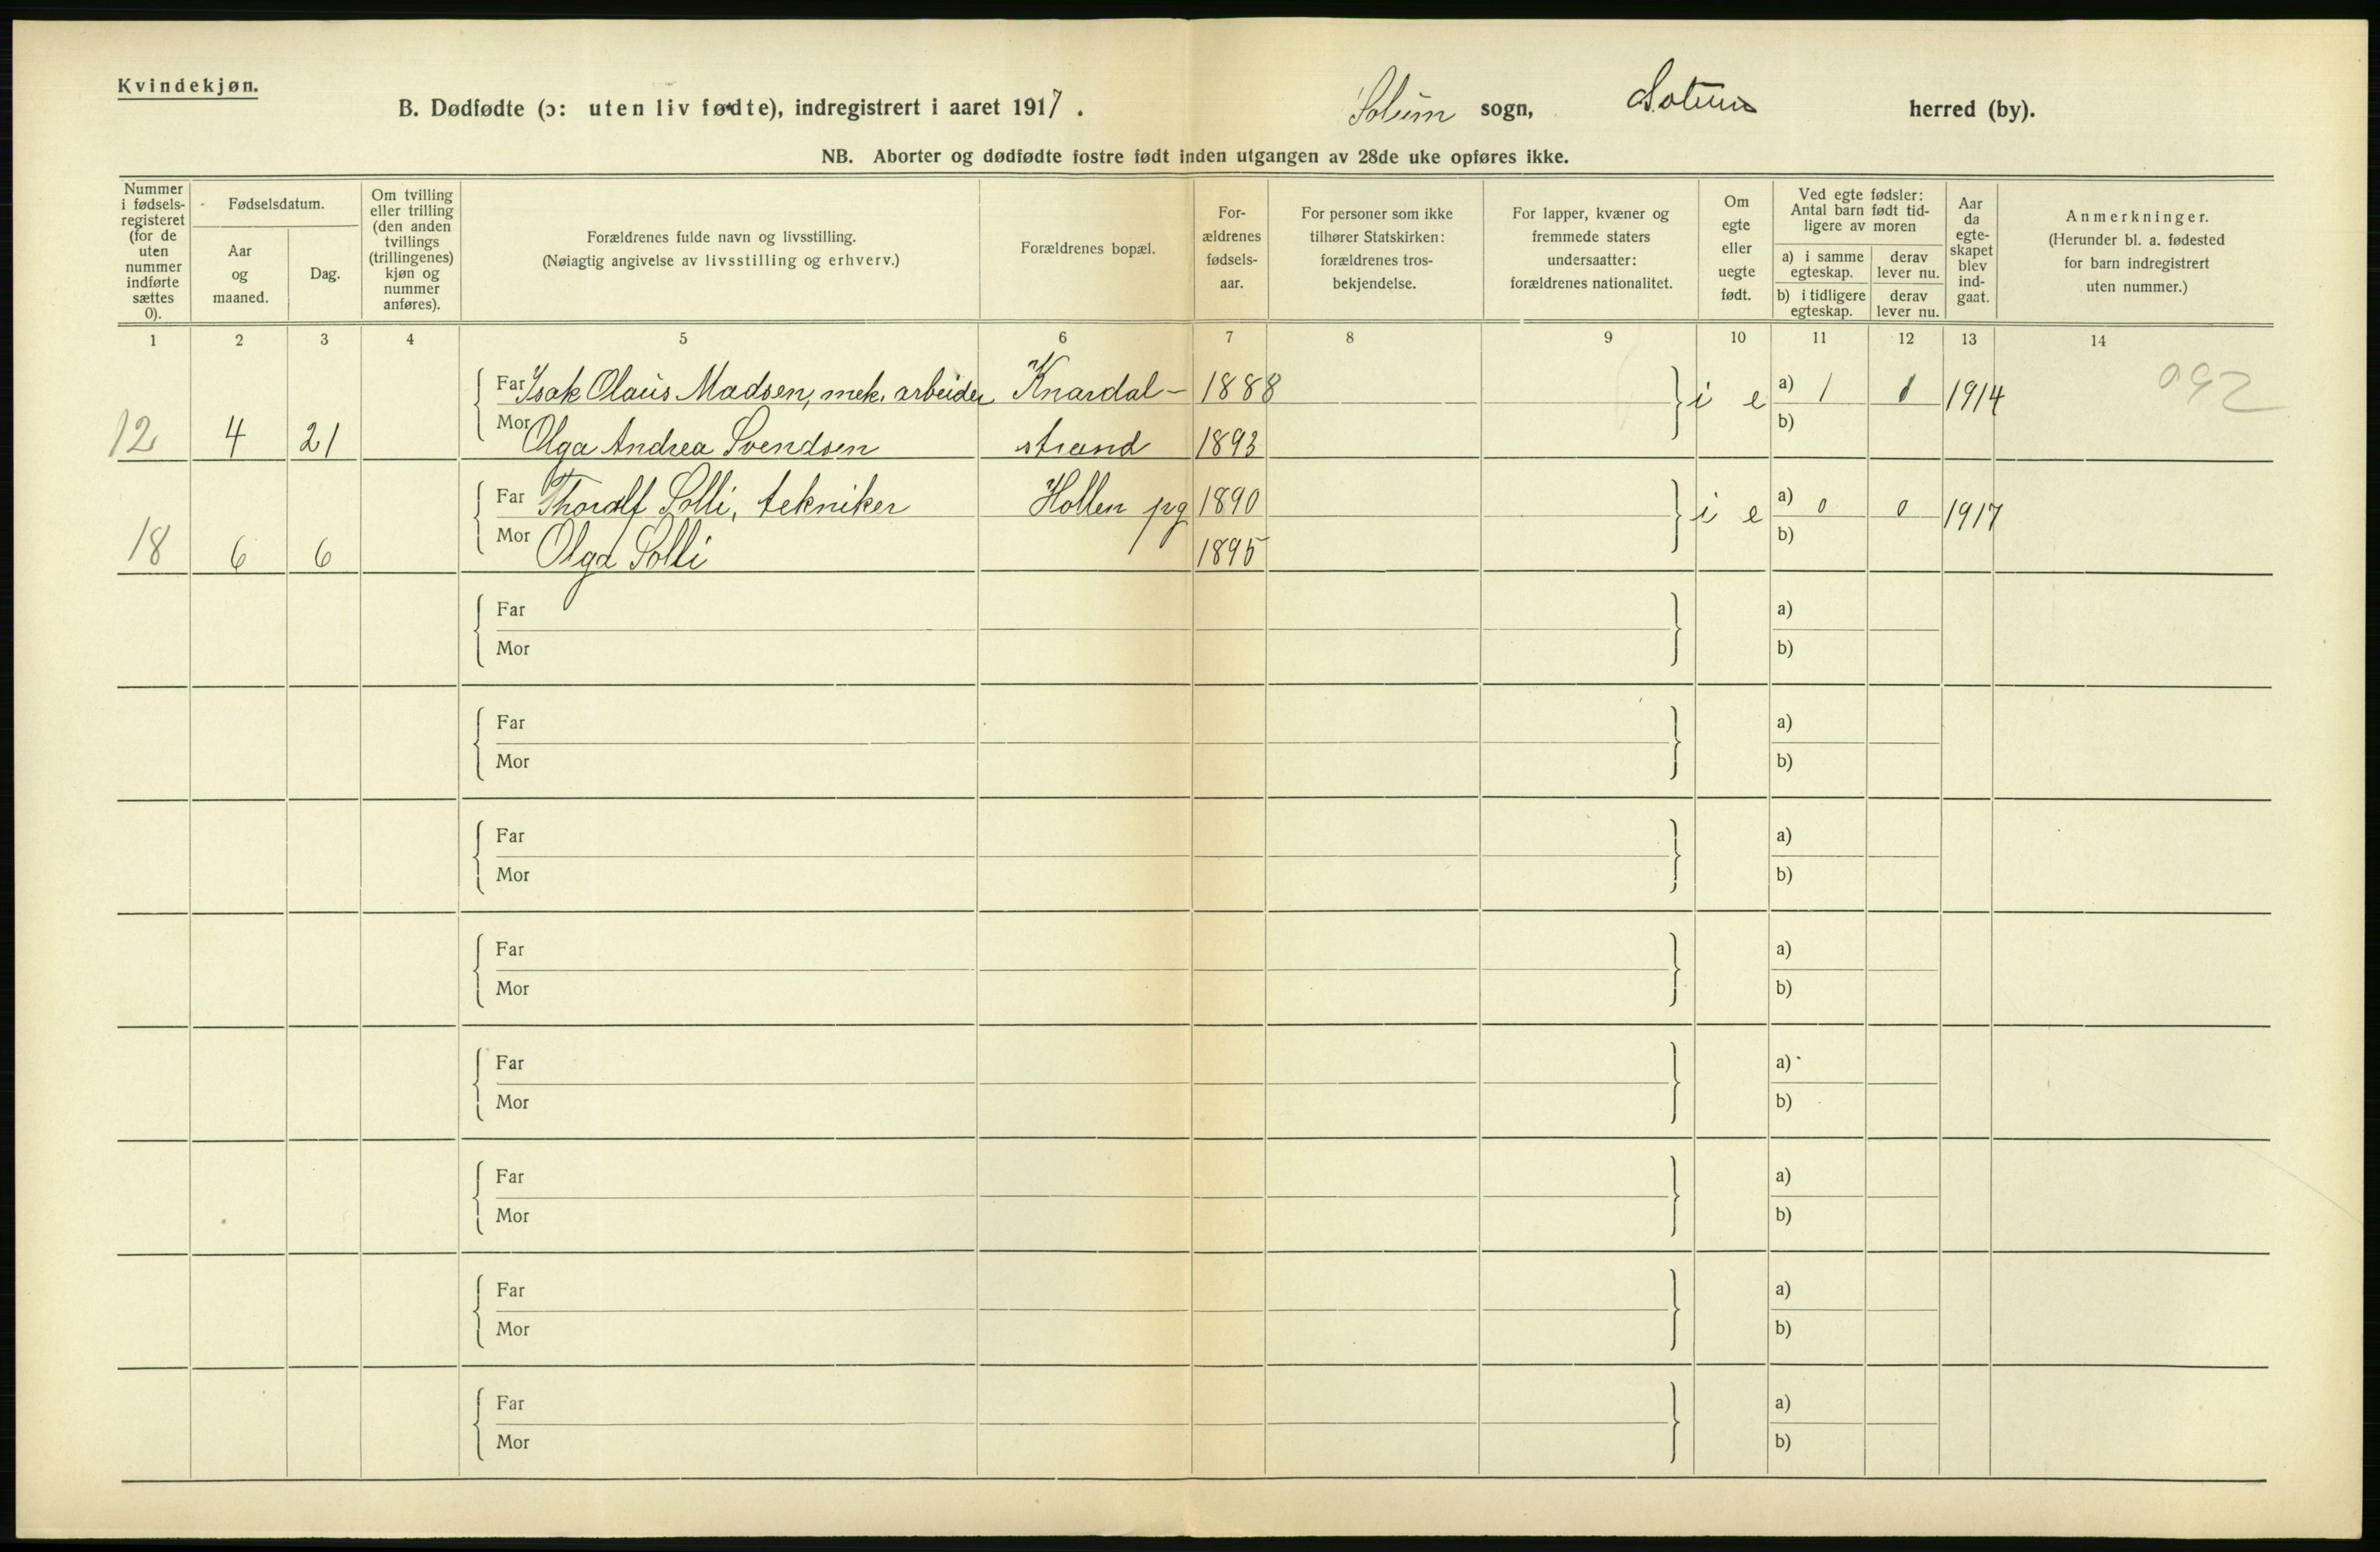 Kvindekjøn.
B. Dødfødte (ɔ: uten liv fødte), indregistrert i aaret 1917. Solum sogn, Solum herred (by).
NB. Aborter og dødfødte fostre født inden utgangen av 28de uke opføres ikke.
Nummer i fødsels-registeret (for de uten nummer indførte sættes 0).
Fødselsdatum.
Aar og maaned.
Dag.
Om tvilling eller trilling (den anden tvillings (trillingenes) kjøn og nummer anføres).
Forældrenes fulde navn og livsstilling.
(Nøiagtig angivelse av livsstilling og erhverv.)
Forældrenes bopæl.
For-ældrenes fødsels-aar.
For personer som ikke tilhører Statskirken: forældrenes tros-bekjendelse.
For lapper, kvæner og fremmede staters undersaatter: forældrenes nationalitet.
Om egte eller uegte født.
Ved egte fødsler: Antal barn født tid-ligere av moren
a) i samme egteskap.
derav lever nu.
b) i tidligere egteskap.
derav lever nu.
Aar da egte-skapet blev ind-gaat.
Anmerkninger.
(Herunder bl. a. fødested for barn indregistrert uten nummer.)
1 2 3 4 5 6 7 8 9 10 11 12 13 14
Far Isak Olaus Madsen, mek. arbeider Knardal- 1888 i e a) 1 1 1914 092
12 4 21 Mor Olga Andrea Svendsen strand 1893 b)
Far Thoralf Solli, tekniker Hollen pg 1890 i e a) 0 0 1917
18 6 6 Mor Olga Solli 1895 b)
Far a)
Mor b)
Far a)
Mor b)
Far a)
Mor b)
Far a)
Mor b)
Far a)
Mor b)
Far a)
Mor b)
Far a)
Mor b)
Far a)
Mor b)